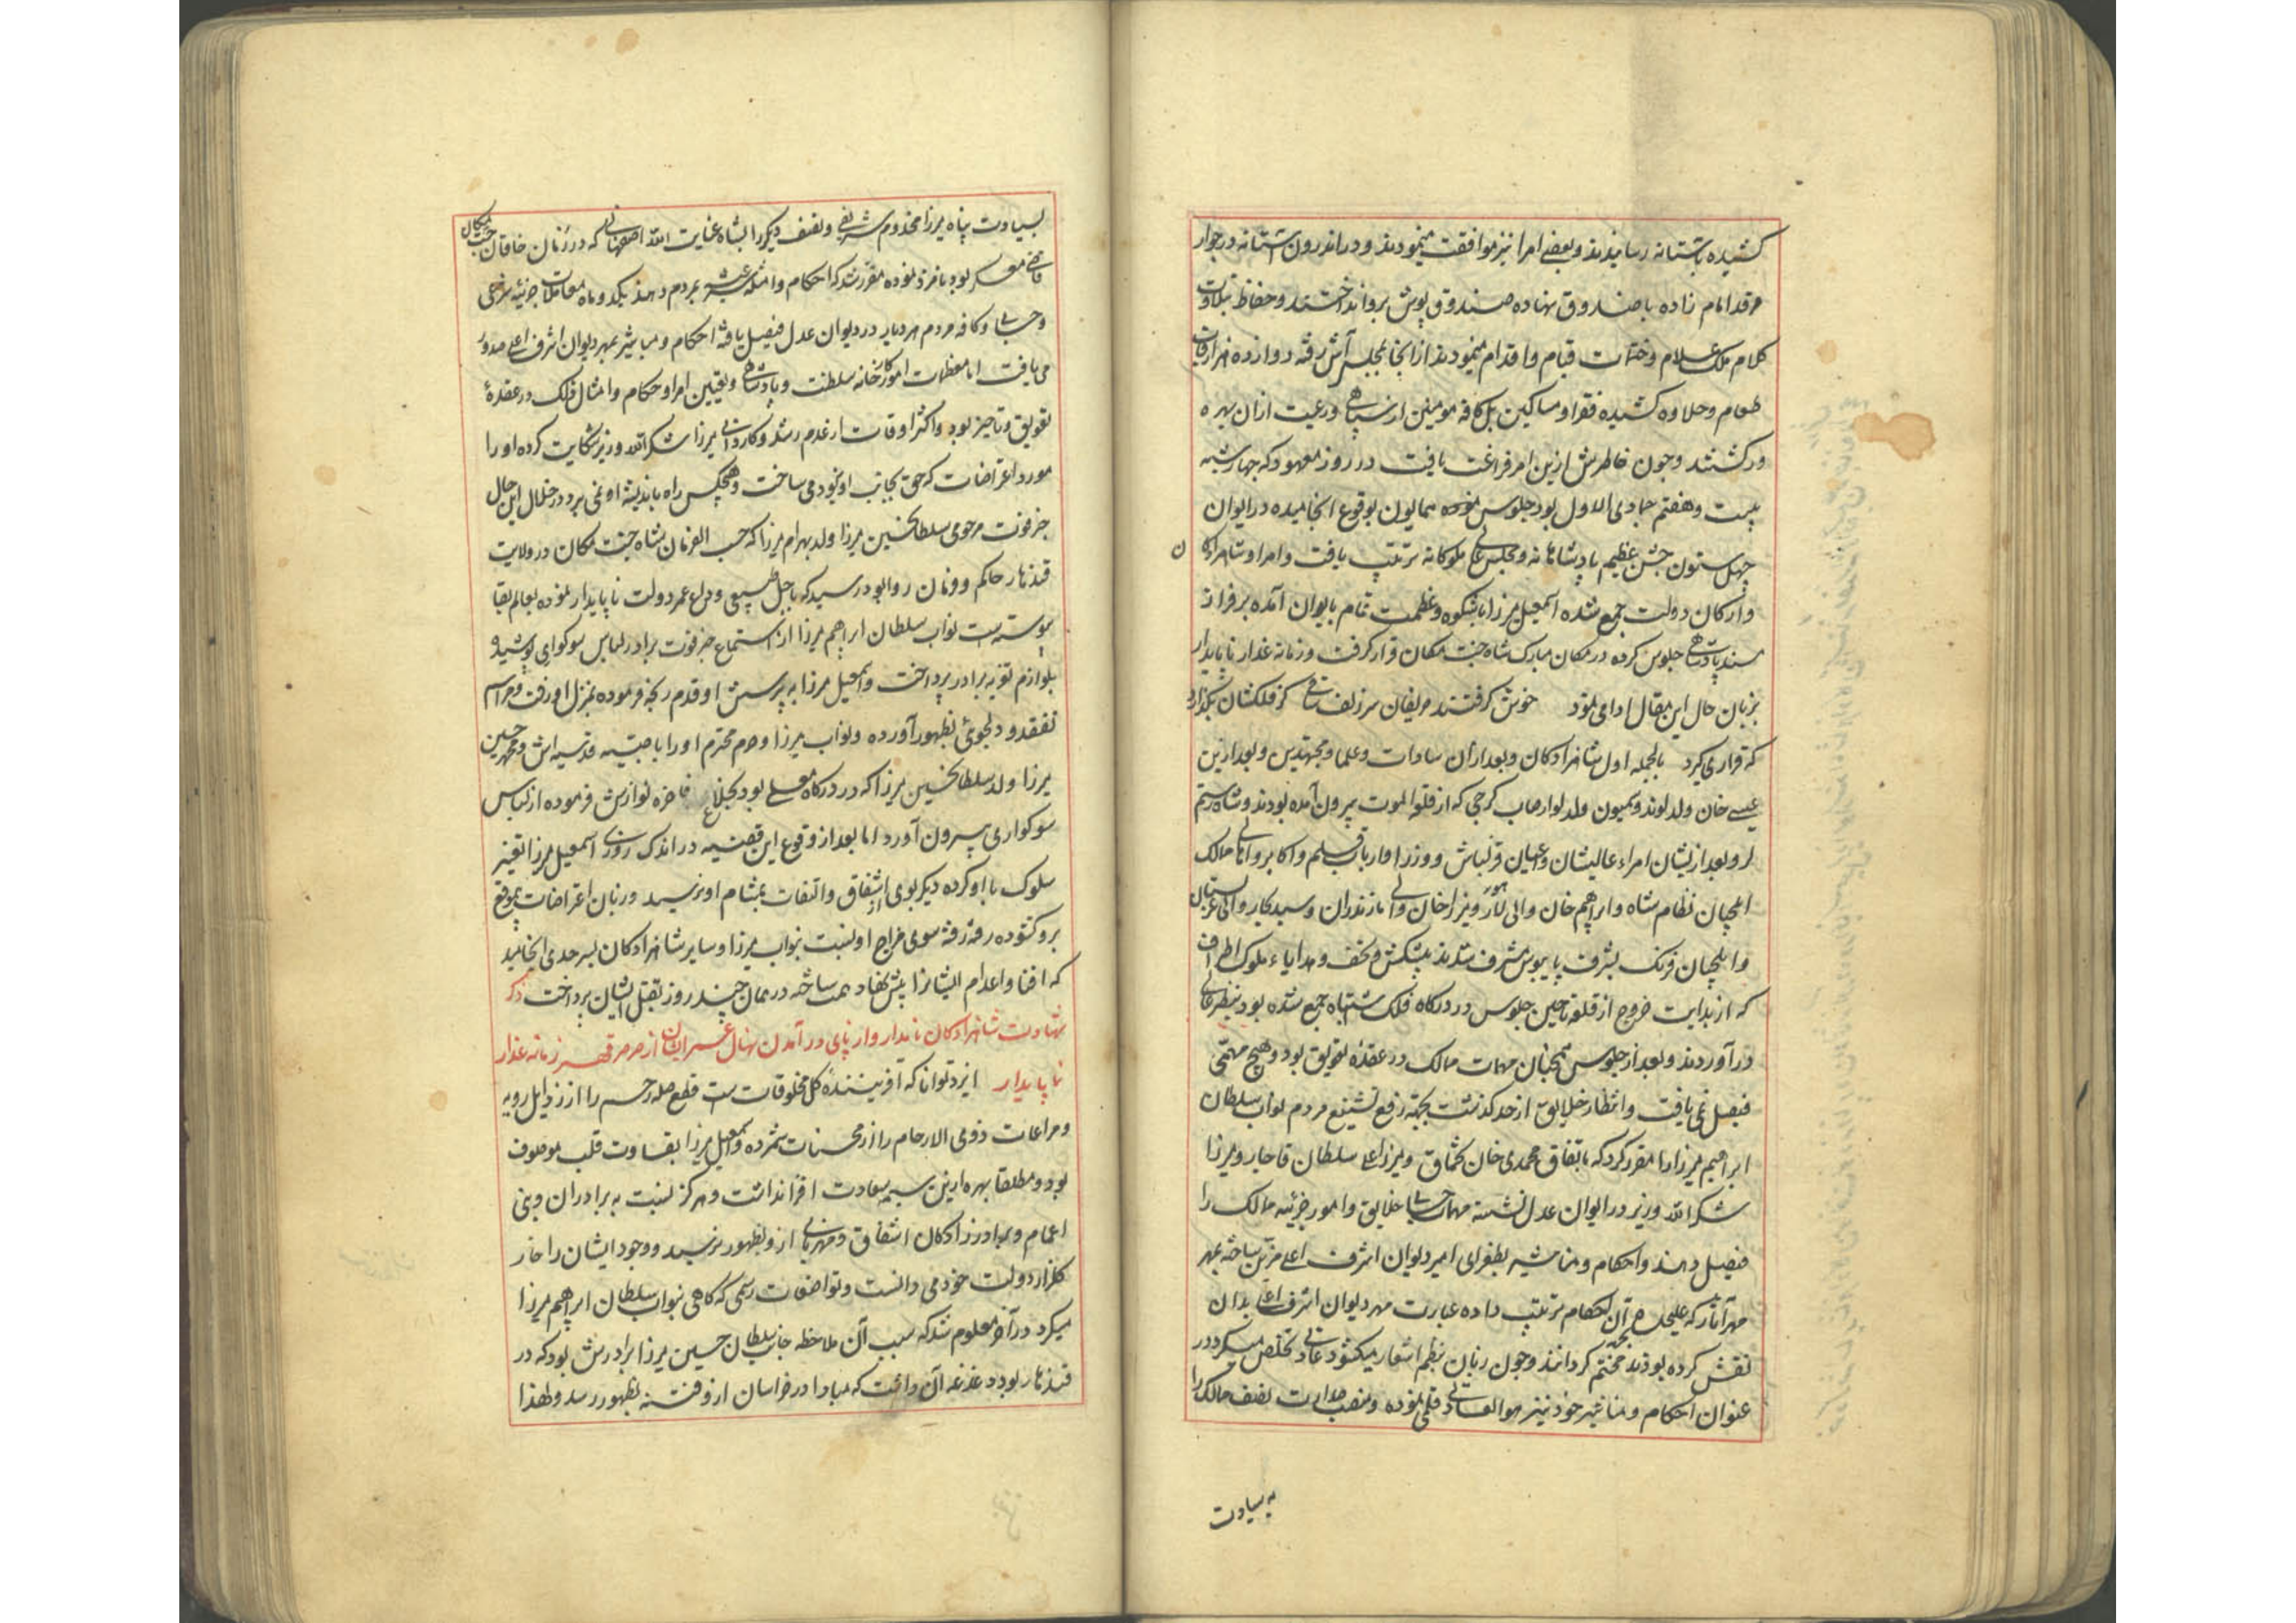 کشیده بآستانه رسانیدند و بعضی امرا نیز موافقت مینمودند و در اندرون آستانه در جوار
مرقد امام زاده باصندوق نهاده صندوق پوش برو انداختند و حفاظ بتلاوت
کلام ملک علام و ختمات قیام و اقدام مینمودند از آنجا بمجلس آش رفته دوازده هزار قاب
طعام و حلاوه کشیده فقرا و مساکین بل کافه مومنین از سپاهی و رعیت ازان بهره
ور گشتند و چون خاطرش ازین امر فراغت یافت در روز معهود که چهارشنبه
بیست و هفتم جمادی الاول بود جلوس همایون بوقوع انجامیده در ایوان
چهل ستون جشن عظیم پادشاهانه و مجلس عالی ملوکانه ترتیب یافت و امرا و شاهزادکان
و ارکان دولت جمع شده اسمعیل میرزا باشکوه و عظمت تمام بایوان آمده بر فراز
مسند پادشاهی جلوس کرده در مکان مبارک شاه جنت مکان قرار گرفت و زمانه غدار ناپایدار
بزبان حال این مقال ادا می نمود خوش گرفتند حریفان سر زلف ساقی گر فلکشان بگذارد
که قراری گیرد بالجمله اول شاهزادکان و بعد ازان سادات و علما و مجتهدین و بعد ازین
عیسی خان ولد لوند و سمیون ولد لوارصاب گرجی که از قلعه الموت بیرون آمده بودند و شاه رستم
لر و بعد از ایشان امراء عالیشان و اعیان قزلباش و وزرا و ارباب قلم و اکابر و اهالی ممالک
ایلچیان نظام شاه و ابراهیم خان والی لار و میرزا خان والی مازندران و سید سجار والی عربستان
و ایلچیان فرنگ بشرف پایبوس مشرف شدند پیشکش و تحف و هدایاء ملوک اطراف
که از بدایت خروج از قلعه تا حین جلوس در درگاه فلک اشتباه جمع شده بود بنظر عالی
درآوردند و بعد از جلوس همچنان مهمات ممالک در عقده تعویق بود و هیچ مهمی
فیصل نمی یافت و انتظار خلایق از حد گذشت بجهة رفع تشنیع مردم نواب سلطان
ابراهیم میرزا را مقرر کرد که باتفاق محمدی خان تخماق و میرزا علی سلطان قاجار و میرزا
شکر الله وزیر در ایوان عدل نشسته مهمات خلایق و امور جزئیه ممالک را
فیصل دهند و احکام و مناشیر بطغرای امیر دیوان اشرف اعلی مزین ساخته بمهر
مهر آثار که علیحده بجهة آن احکام ترتیب داده عبارت مهر دیوان اشرف اعلی بدان
نقش کرده بودند مختم گردانند و چون بزبان نظم اشعار میگفتند عادلی تخلص میکرد در
عنوان احکام و مناشیر خود نیز هو العادل قلمی نموده و منصب صدارت نصف ممالک را
به سیادت
بسیادت پناه میرزا مخدوم شریفی و نصف دیگر را بشاه عنایت الله اصفهانی که در زمان خاقان جنت مکان
قاضی معسکر بود نامزد نموده مقرر شد که احکام و امثله شرعیه بمردم دهند یکدو ماه معاملات جزئیه شرعی
و حسابی و کافه مردم هر دیار در دیوان عدل فیصل یافته احکام و مناشیر بمهر دیوان اشرف اعلی صدور
می یافت اما معظمات امور کارخانه سلطنت و پادشاهی و تعیین امرا و حکام و امثال ذلک در عقده
تعویق و تاخیر بود و اکثر اوقات از عدم رشد و کاردانی میرزا شکر الله وزیر شکایت کرده او را
مورد اعتراضات که حق بجانب او نبود می ساخت و هیچکس راه باندیشه او نمی برد در خلال این حال
خبر فوت مرحومی سلطان حسین میرزا ولد بهرام میرزا که حسب الفرمان شاه جنت مکان در ولایت
قندهار حاکم و فرمان روا بود رسید که باجل طبیعی وداع عمر و دولت ناپایدار نموده بعالم بقا
پیوسته است نواب سلطان ابراهیم میرزا از استماع خبر فوت برادر لباس سوکواری پوشیده
بلوازم تعزیه برادر پرداخت و اسمعیل میرزا به پرسش او قدم رنجه فرموده بمنزل او رفت و مراسم
تفقد و دلجوئی بظهور آورده و نواب میرزا و حرم محترم او را با صبیه قدسیه اش و محمد حسین
میرزا ولد سلطان حسین میرزا که در درگاه معلی بود بخلاع فاخره نوازش فرموده از لباس
سوکواری بیرون آورد اما بعد از وقوع این قضیه در اندک روزی اسمعیل میرزا تغییر
سلوک با او کرده دیگر بوی اشفاق و التفات بمشام او نرسید و زبان اعتراضات بموقع
برو گشوده رفته رفته سوی مزاج او نسبت بنواب میرزا و سایر شاهزادکان بسرحدی انجامید
که افنا و اعدام ایشانرا پیش نهاد همت ساخته در همان چند روز بقتل ایشان پرداخت ذکر
شهادت شاهزادکان نامدار و از پای درآمدن نهال عمر ایشان از صرصر قهر زمانه غدار
ناپایدار ایزد توانا که آفریننده کل مخلوقات است قطع صله رحم را از رذایل رویه
و مراعات ذوی الارحام را از محسنات شمرده و اسمعیل میرزا بقساوت قلب موصوف
بود و مطلقا بهره ازین شیمه سعادت افزا نداشت و هرگز نسبت به برادران و بنی
اعمام و برادرزادکان اشفاق و مهربانی ازو بظهور نرسید و وجود ایشان را خار
گلزار دولت خود می دانست و تواضعات رسمی که گاهی بنواب سلطان ابراهیم میرزا
میکرد در آخر معلوم شد که سبب آن ملاحظه جانب سلطان حسین میرزا برادرش بود که در
قندهار بود و دغدغه آن داشت که مبادا در خراسان ازو فتنه بظهور رسد و لهذا